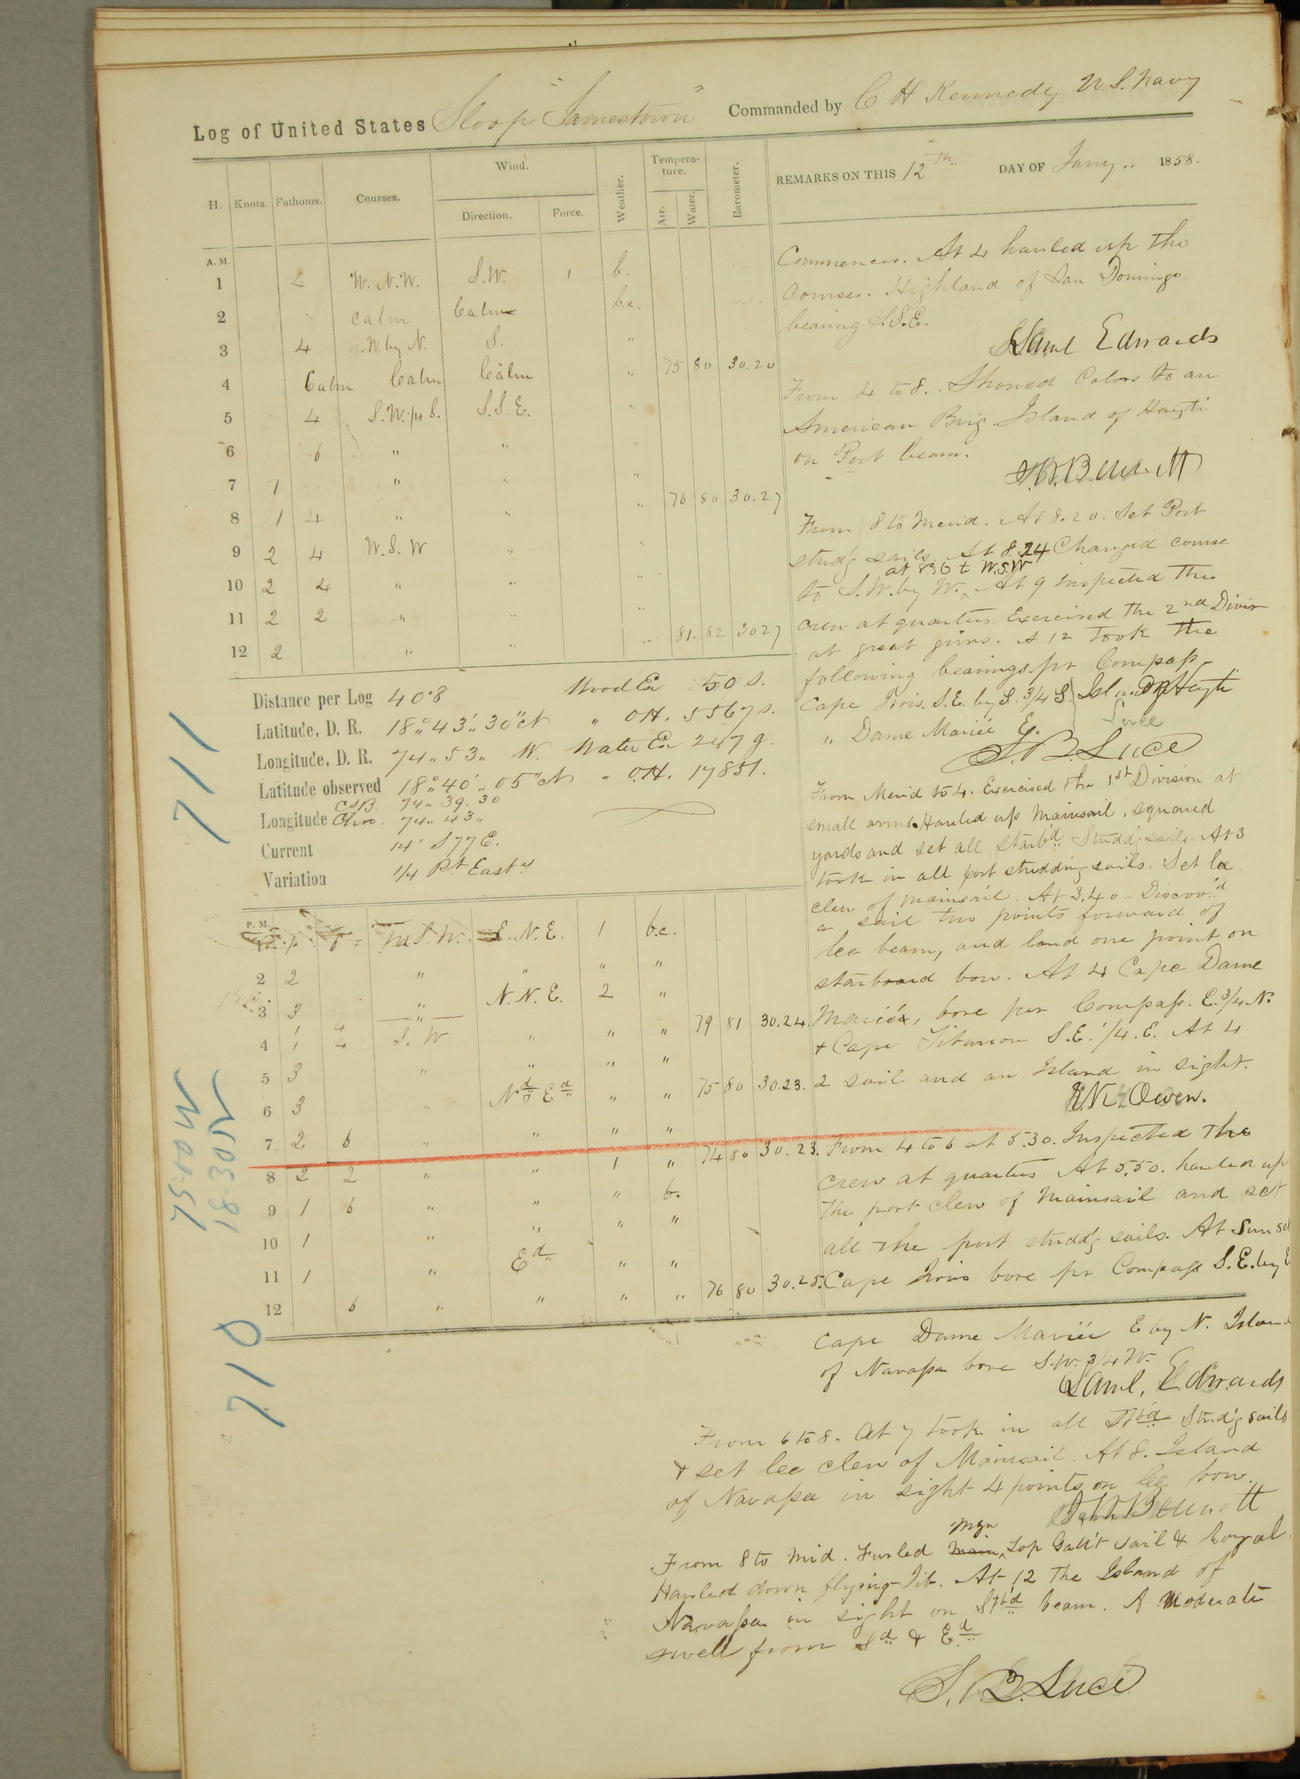 Log of United States Sloop "Jamestown" Commanded by C H Kennedy U.S. Navy
H. Knots. Fathoms. Courses. Wind. Direction. Force. Weather. Tempera-ture. Air. Water. Barometer.
REMARKS ON THIS 12th DAY OF Jany .. 1858.
A. M.
1 4 W. N. W. S.W. 1 b.
2 calm Calm b.c.
3 4 .W. by N. S. "
4 Calm Calm Calm " 75 80 30.20
5 4 S. W. S.S.E. "
6 6 " " "
7 1 " " "
8 1 4 " " " 76 80 30.27
9 2 4 W. S. W " "
10 2 4 " " "
11 2 2 " " "
12 2 " " " 81. 82 3027
Commences. At 4 hauled up the
Courses. Highland of San Domingo
bearing S.S.E.
Saml Edwards
From 4 to 8. Showed Colors to an
American Brig. Island of Hayti
on Port beam.
Bennett
From 8 to Merid. At 8.20. Set Port
stud'g sails. At 8.24 Changed course
at 836 to W.S.W
to S.W. by W. At 9 inspected the
crew at quarters. Exercised the 2nd Divis
at great guns. A 12 took the
following bearings pr Compass
Cape S.E. by S. 3/4 S. Isl of Hayti
" Dame Mariée E. Luce
S. B. Luce
Distance per Log 40.8 Wood Ex 50 s.
Latitude, D. R. 18° 43' 30" N " O.H. 5567 s.
Longitude, D. R. 74 " 53 " W. Water Ex 247 g.
Latitude observed 18° 40' 05" N " O.H. 17851.
C&B. 74 " 39. 30
Longitude Chro. 74 " 43 "
Current 14' S 77 E.
Variation 1/4 Pt Eastly
From Merid to 4. Exercised the 1st Division at
small arms. Hauled up Mainsail, squared
yards and set all starb'd Studd'g sails. At 3
took in all port studding sails. Set lee
clew of mainsail. At 3,40 - Discov'd
a sail two points forward of
lee beam, and land one point on
starboard bow. At 4 Cape Dame
Mariée, bore per Compass. E. 3/4 N.
& Cape Tiburon S.E. 1/4. E. At 4
2 sail and an Island in sight.
Owen.
P. M.
1 S. W. E. N. E. 1 b.c.
2 2 " " " "
3 3 " N. N. E. 2 "
4 1 4 " " " " 79 81 30.24.
5 3 4 S. W " " "
6 3 " Nd & Ed " " 75 80 3023.
7 2 6 " " " "
8 2 2 " " 1 " 74 80 30.23.
9 1 6 " " " b.
10 1 " " " "
11 1 " Ed " "
12 6 " " " " 76 80 30.25.
From 4 to 6 at 5.30. Inspected the
crew at quarters. At 5,50. hauled up
the port clew of Mainsail and set
all the port studd'g sails. At Sunset
Cape bore pr Compass S. E. by E
Cape Dame Mariée E by N. Island
of Navassa bore S.W. 3/4 W.
Saml. Edwards
From 6 to 8. At 7 took in all Stb'd Stud'g sails
& set lee clew of Mainsail. At 8. Island
of Navassa in sight 4 points on lee bow.
Bennett
From 8 to Mid. Furled Main Mzn Top Gall't sail & Royal.
Hauled down flying-Jib. At 12 the Island of
Navassa in sight on Stb'd beam. A Moderate
swell from Sd & Ed
S. B. Luce
711
18.30 N
75.00 W
710